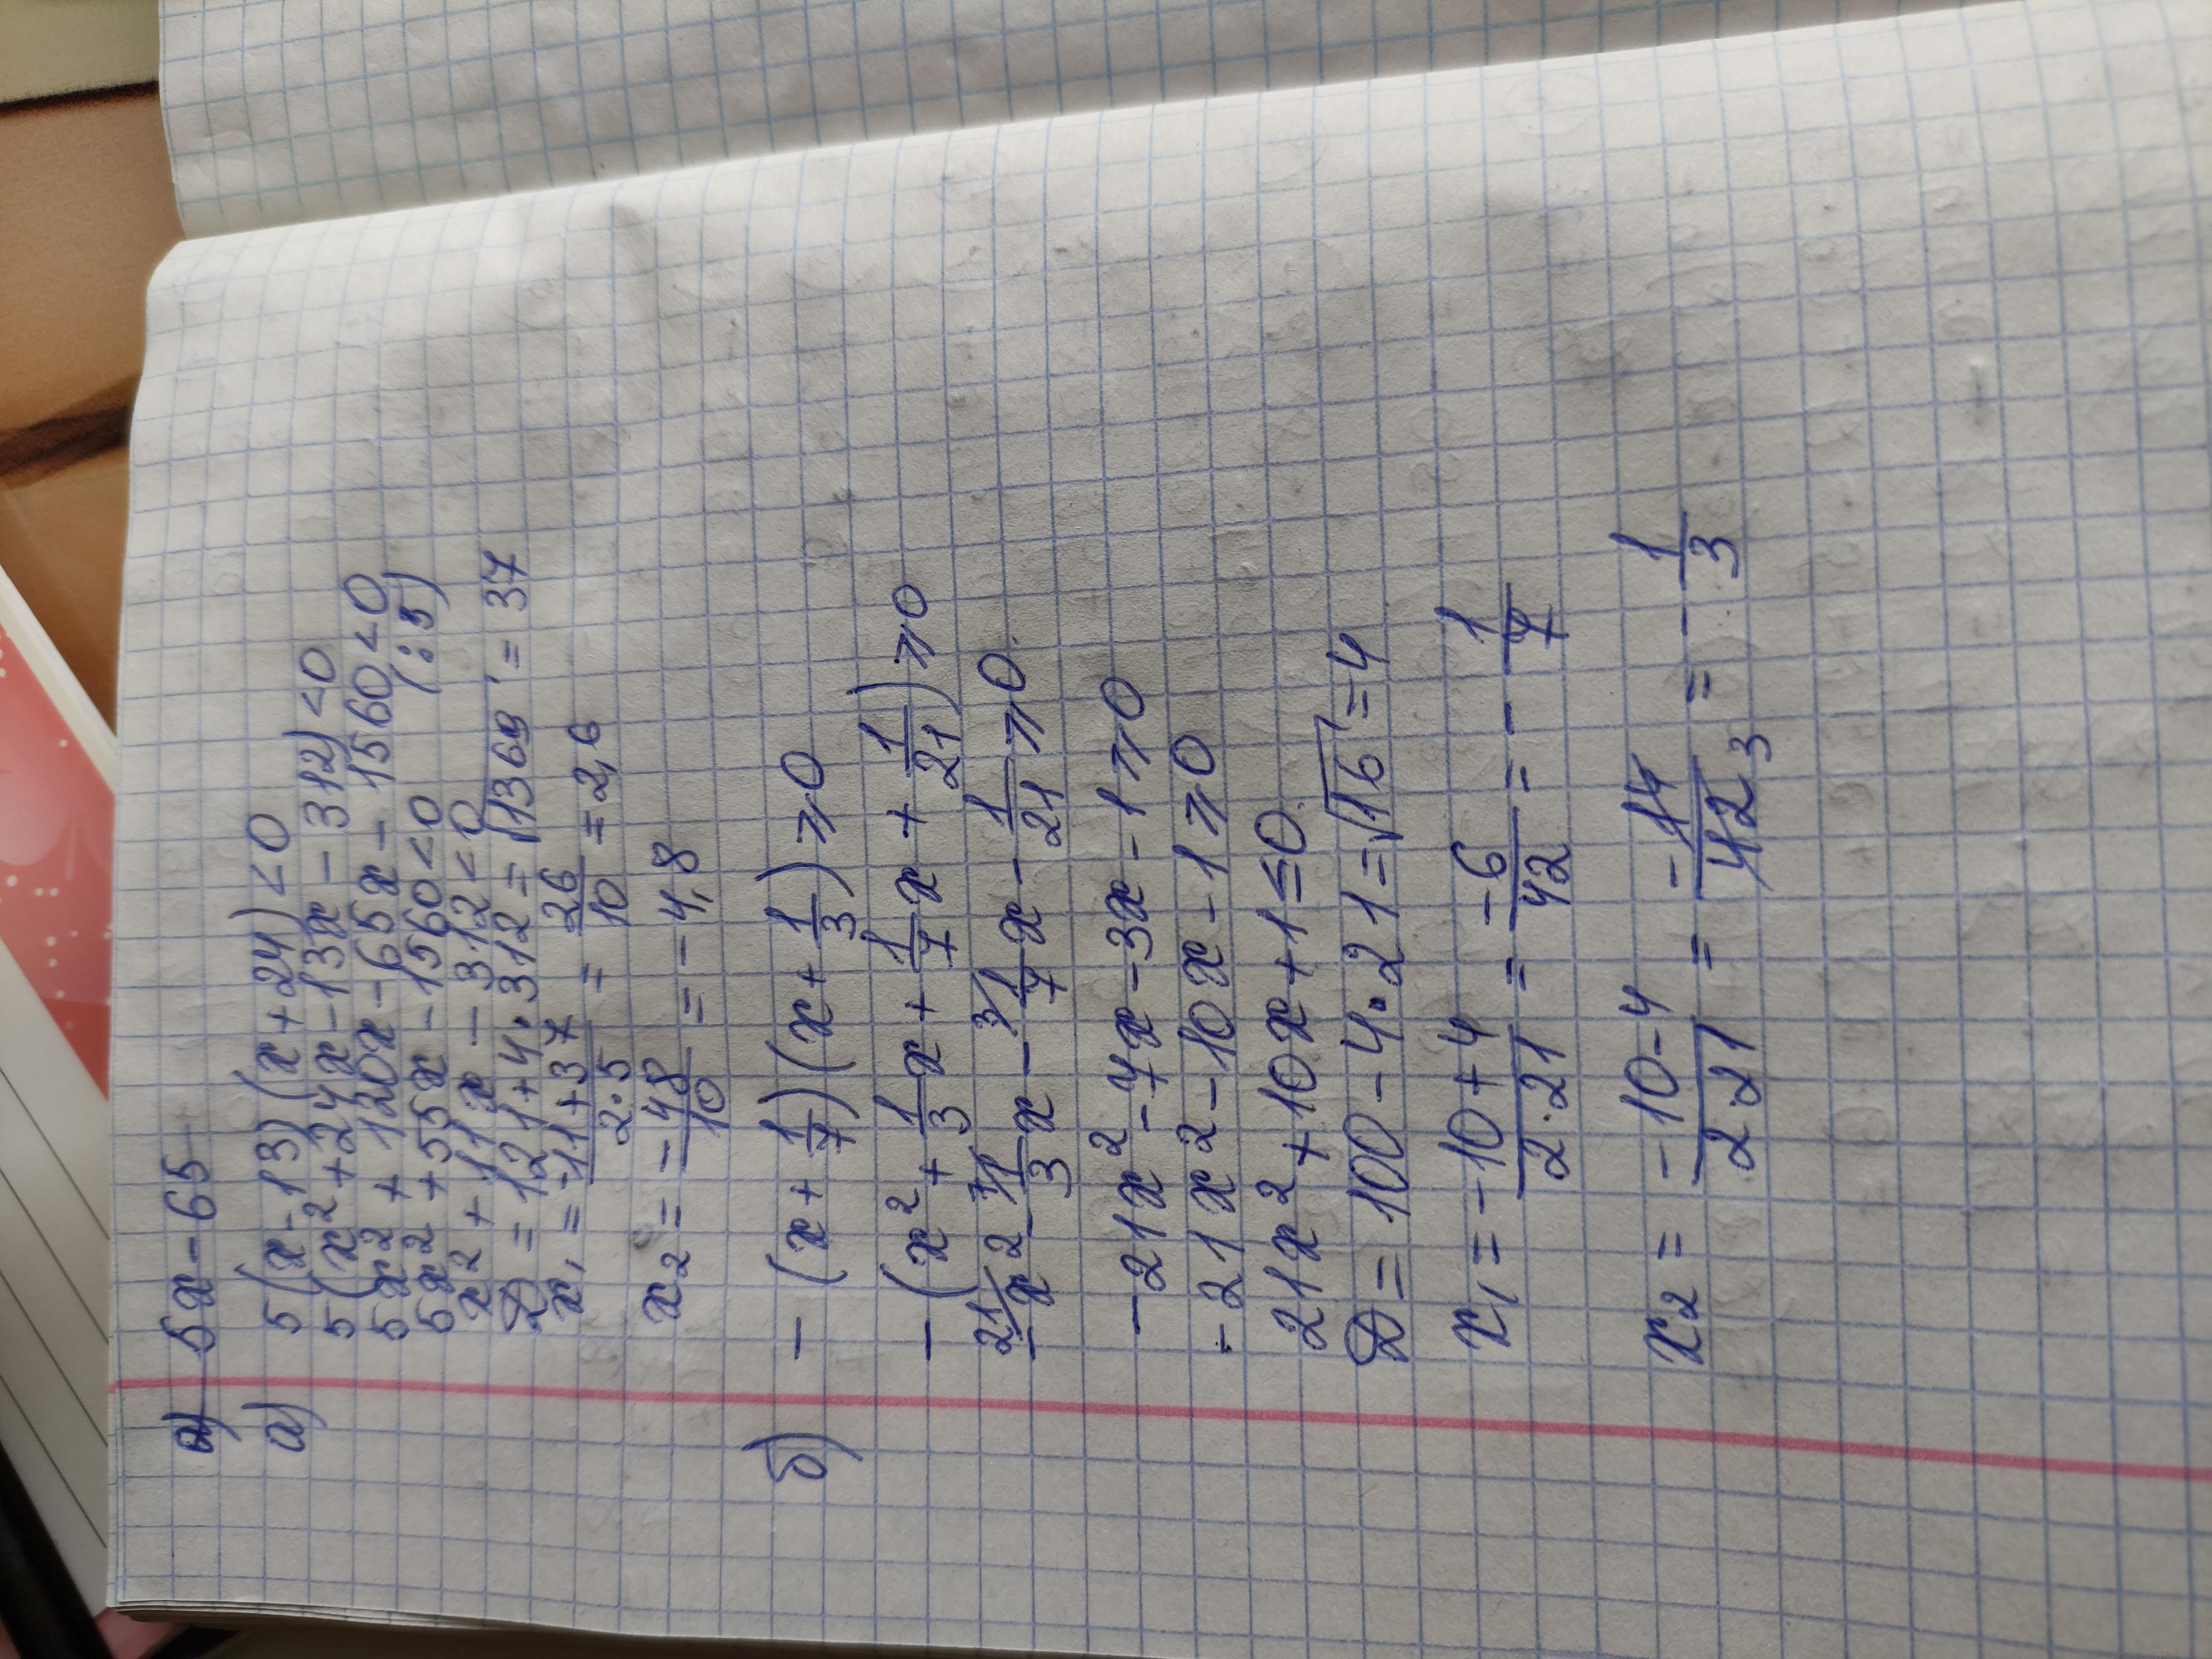 а) 5x-65
а) 5(x-13)(x+24)<0
5(x²+24x-13x-312)<0
5x²+120x-65x-1560<0
5x²+55x-1560<0 (:5)
x²+11x-312<0
D=121+4·312=√1369=37
x₁=(-11+37)/(2·5)=26/10=2,6
x₂=-48/10=-4,8
б) -(x+1/7)(x+1/3)⩾0
-(x²+1/3x+1/7x+1/21)⩾0
21/-x²-7/1/3x-3/1/7x-1/21⩾0
-21x²-7x-3x-1⩾0
-21x²-10x-1⩾0
21x²+10x+1≤0
D=100-4·21=√16=4
x₁=(-10+4)/(2·21)=-6/42=-1/7
x₂=(-10-4)/(2·21)=-14/42 3=-1/3